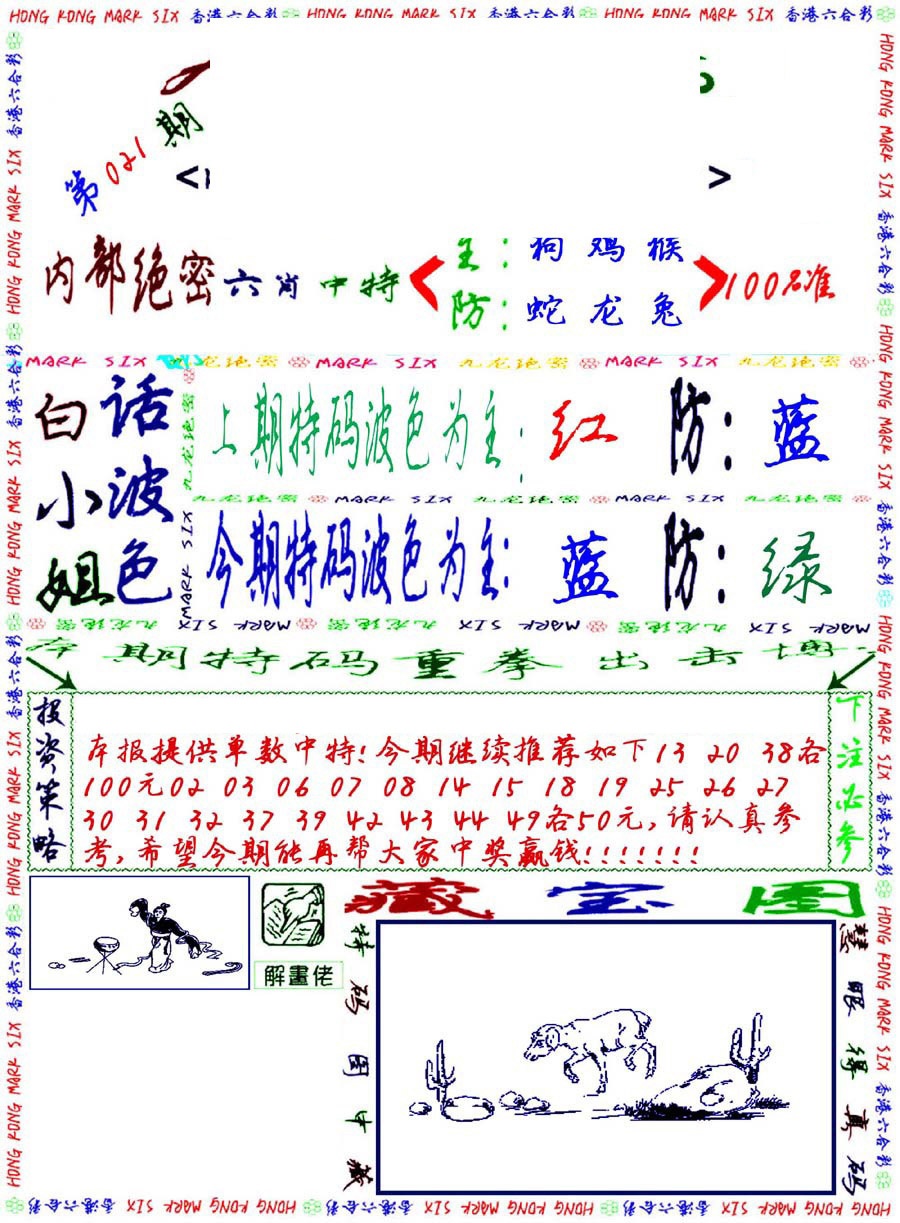 HONG KONG MARK SIX 香港六合彩 HONG KONG MARK SIX 香港六合彩 HONG KONG MARK SIX 香港六合彩
第021期
< >
内部绝密六肖中特
主：狗鸡猴
防：蛇龙兔
100%准
MARK SIX 九龙绝密 MARK SIX 九龙绝密 MARK SIX 九龙绝密
白话
小波
姐色
上期特码波色为主：红 防：蓝
九龙绝密 MARK SIX 九龙绝密 MARK SIX 九龙绝密
今期特码波色为主：蓝 防：绿
九龙绝密 MARK SIX 九龙绝密 MARK SIX 九龙绝密 MARK SIX
本期特码重拳出击博
投资策略
本报提供单数中特!今期继续推荐如下13 20 38各
100元02 03 06 07 08 14 15 18 19 25 26 27
30 31 32 37 39 42 43 44 49各50元,请认真参
考,希望今期能再帮大家中奖赢钱!!!!!!!
下注必参
解畫佬
藏宝图
特码图中藏
慧眼得真码
HONG KONG MARK SIX 香港六合彩 HONG KONG MARK SIX 香港六合彩 HONG KONG MARK SIX 香港六合彩